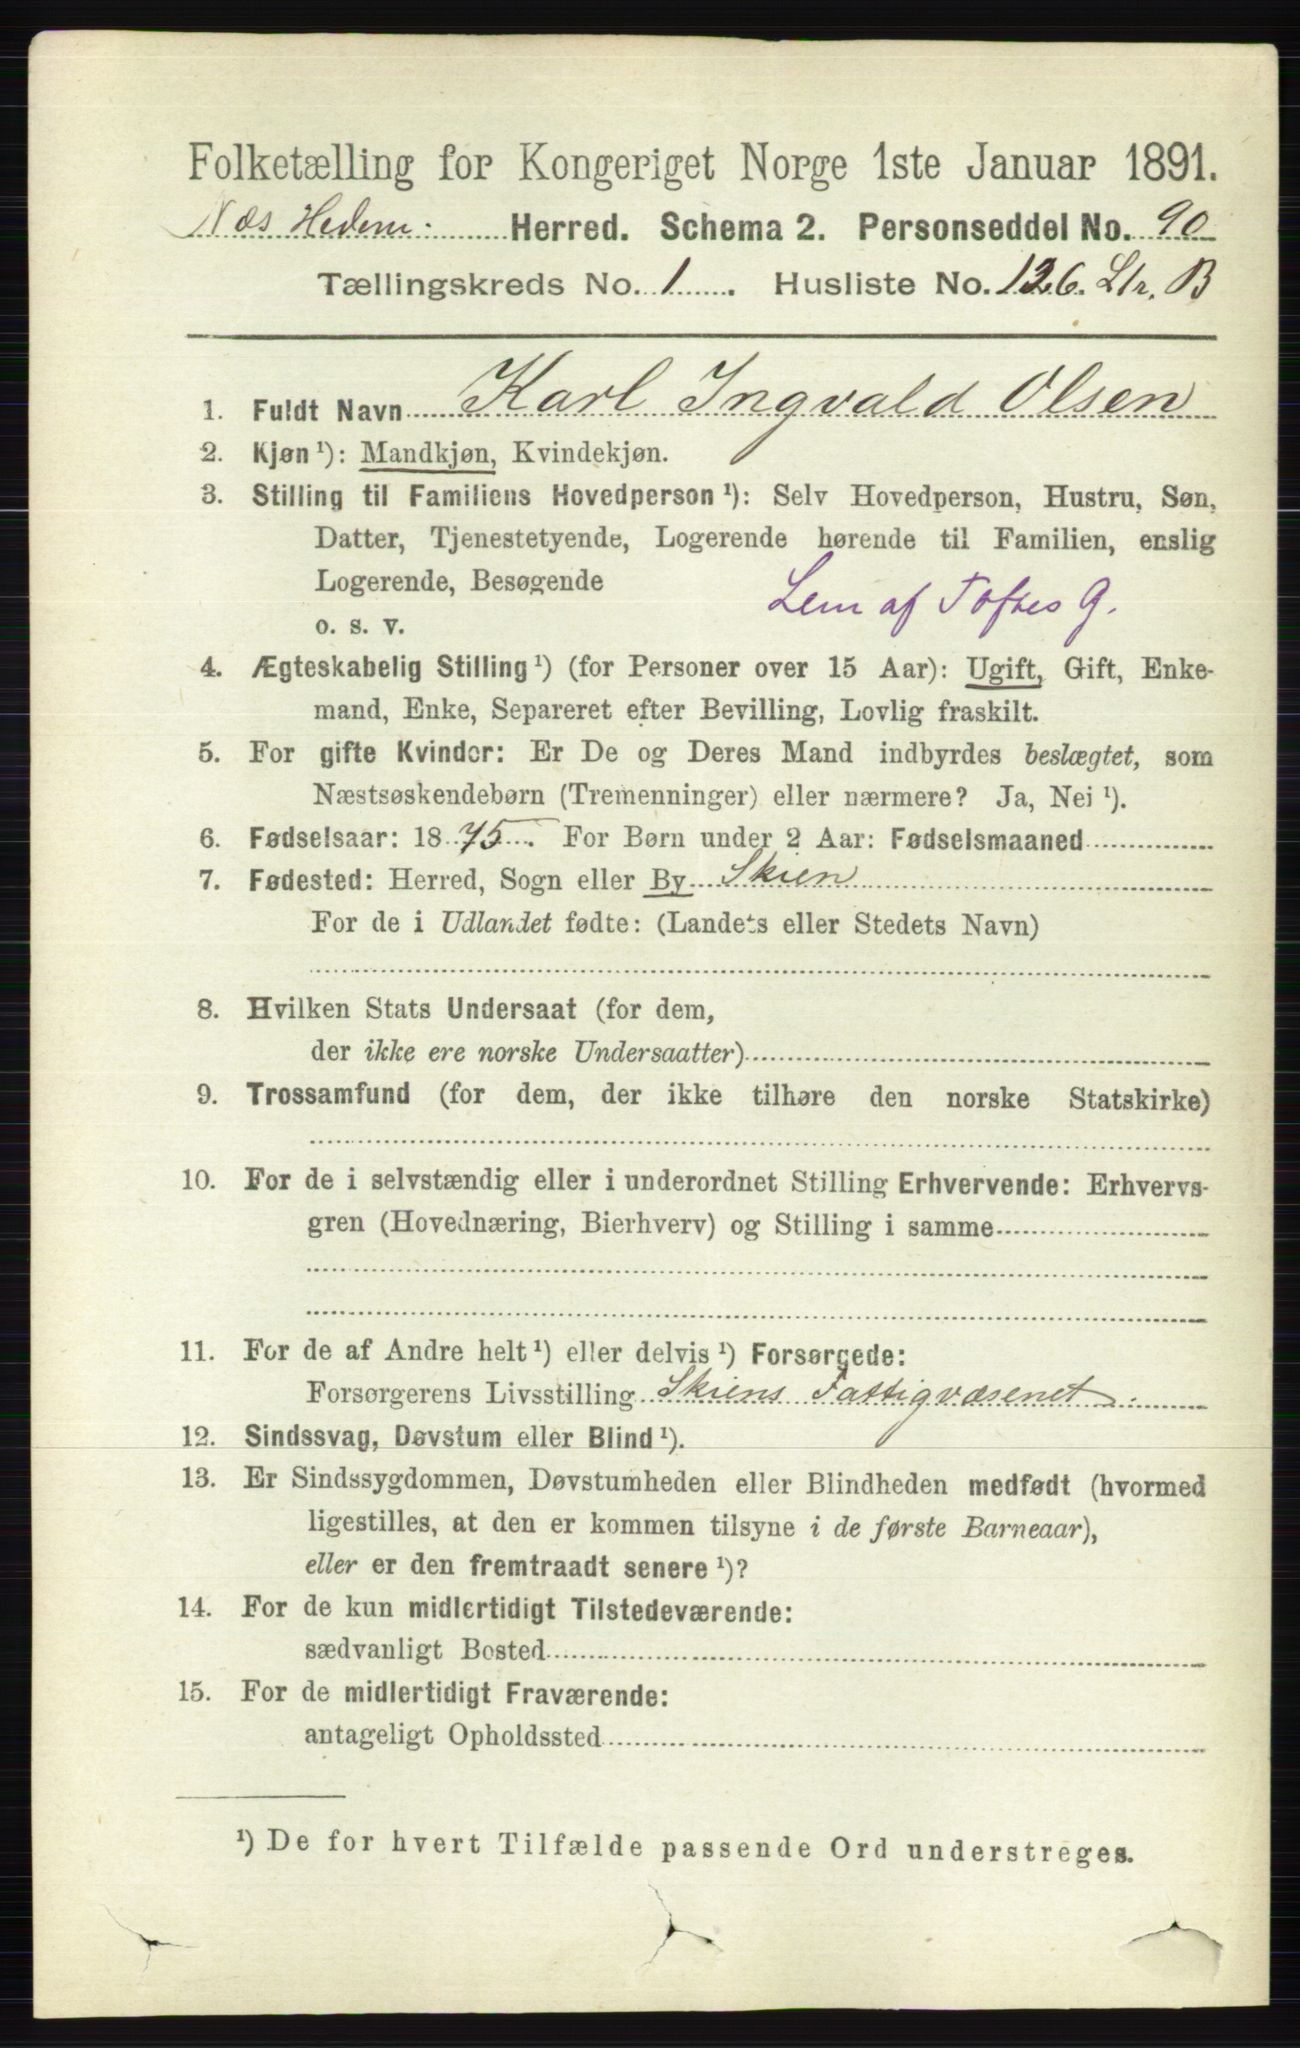 Folketælling for Kongeriget Norge 1ste Januar 1891.
Næs Hedem: Herred. Schema 2. Personseddel No. 90
Tællingskreds No. 1. Husliste No. 126. Ltr. B
1. Fuldt Navn Karl Ingvald Olsen
2. Kjøn ¹): Mandkjøn, Kvindekjøn.
3. Stilling til Familiens Hovedperson ¹): Selv Hovedperson, Hustru, Søn,
Datter, Tjenestetyende, Logerende hørende til Familien, enslig
Logerende, Besøgende
o. s. v. Lem af Toftes G.
4. Ægteskabelig Stilling ¹) (for Personer over 15 Aar): Ugift, Gift, Enke-
mand, Enke, Separeret efter Bevilling, Lovlig fraskilt.
5. For gifte Kvinder: Er De og Deres Mand indbyrdes beslægtet, som
Næstsøskendebørn (Tremenninger) eller nærmere? Ja, Nei ¹).
6. Fødselsaar: 1875. For Børn under 2 Aar: Fødselsmaaned
7. Fødested: Herred, Sogn eller By Skien
For de i Udlandet fødte: (Landets eller Stedets Navn)
8. Hvilken Stats Undersaat (for dem,
der ikke ere norske Undersaatter)
9. Trossamfund (for dem, der ikke tilhøre den norske Statskirke)
10. For de i selvstændig eller i underordnet Stilling Erhvervende: Erhvervs-
gren (Hovednæring, Bierhverv) og Stilling i samme
11. For de af Andre helt ¹) eller delvis ¹) Forsørgede:
Forsørgerens Livsstilling Skiens Fattigvæsenet
12. Sindssvag, Døvstum eller Blind ¹).
13. Er Sindssygdommen, Døvstumheden eller Blindheden medfødt (hvormed
ligestilles, at den er kommen tilsyne i de første Barneaar),
eller er den fremtraadt senere ¹)?
14. For de kun midlertidigt Tilstedeværende:
sædvanligt Bosted
15. For de midlertidigt Fraværende:
antageligt Opholdssted
¹) De for hvert Tilfælde passende Ord understreges.